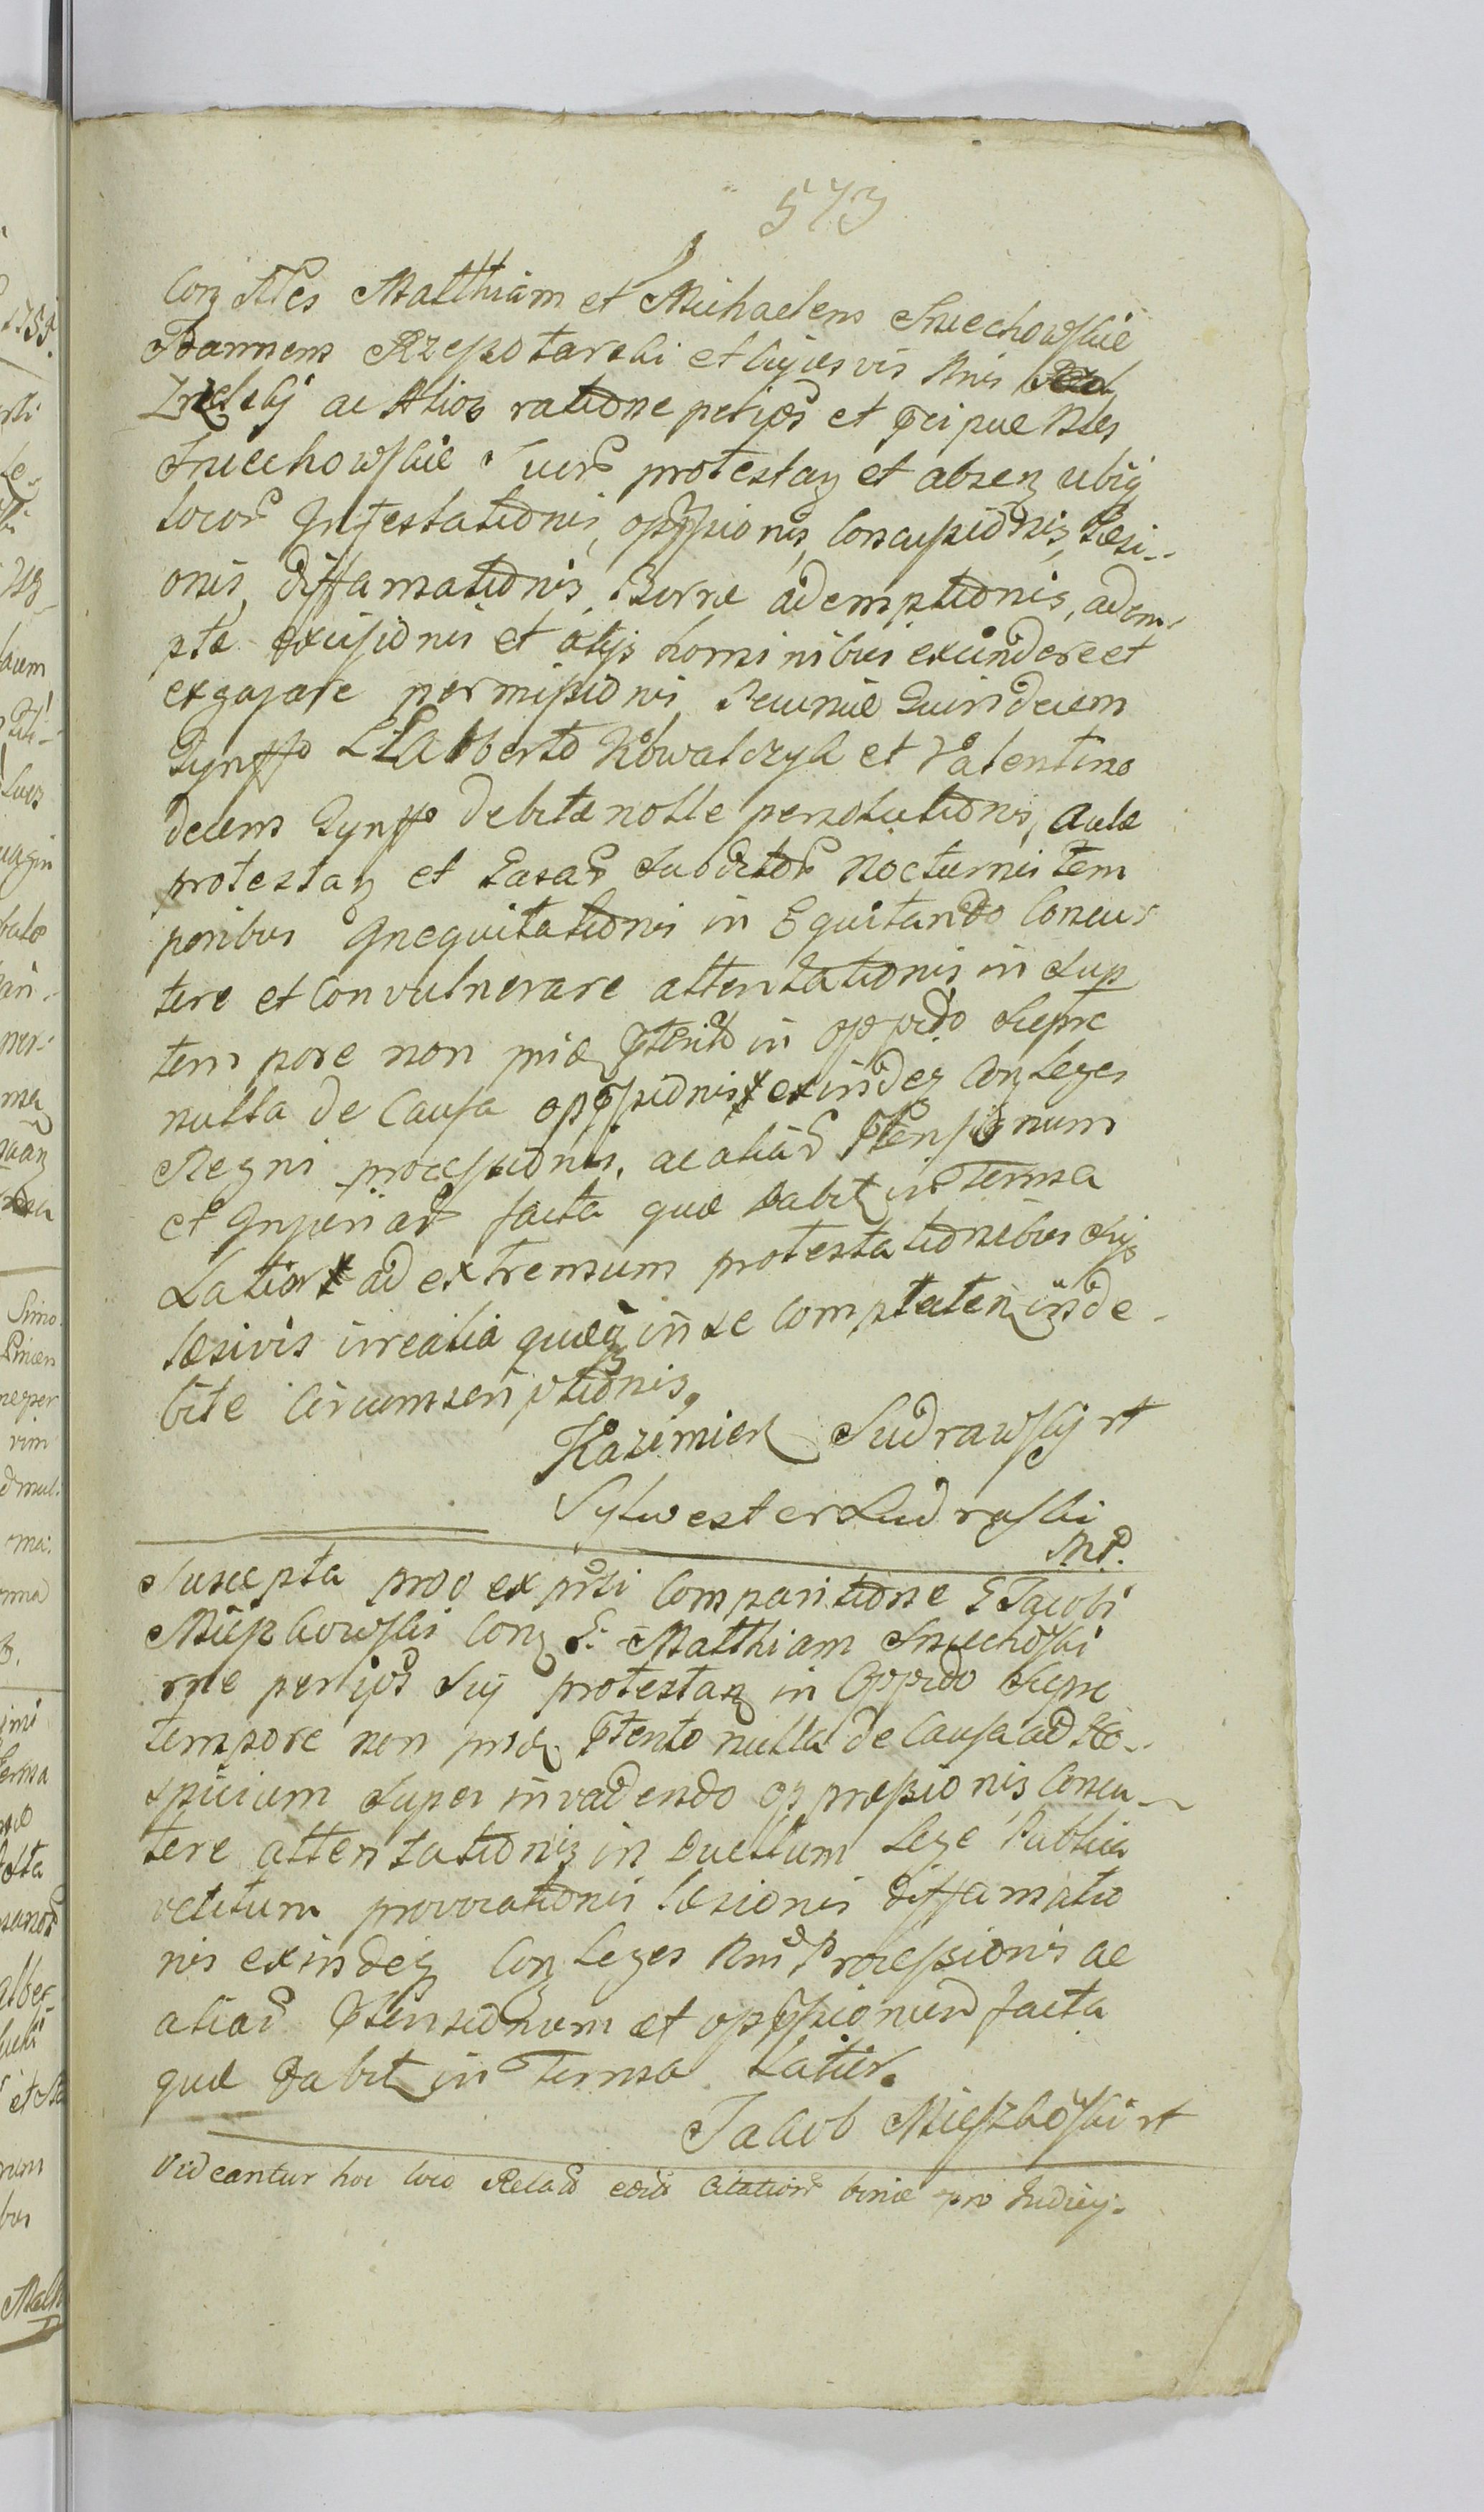 573
Conz Nles Matthiam et Michaelem Sniechowskie
Joannem Rzepotarski et cujusvis Nnis
ac Alios ratione petijor et pcipue Nles
Sniechowskie suor protestan et absenz ubiq
locor Infestationis, opppsionis, Concussionis, Læsi-
onis, diffamationis, Borræ ademptionis, adem-
ptæ excisionis et alijs hominibus exscindere et
ex gajare permissionis, Pecuniæ Quindecim
Tynffo Alberto Kowalczyk et Valentino
decem Tynffo debitæ nolle persolutionis, Aulæ
protestan et Casar Subditor Nocturnis tem
poribus Inequitationis in Equitando Concu-
tere et Convulnerare attentationis in Sup
tempore non pridæ ptento in oppido Siepre
nulla de Causa opppsionis exindeq Conz Leges
Regni processionis, ac aliar Ptensionum
et Injuriar facta quæ dabit in Termsa
Latior ad extremum protestationibus Sijs
læsivis irrealia quæq in se Complecten inde-
bite Circumscriptionis.
Kazimierz Sudrawskj rt
Sylwester Sudraski
Mp.
Suscepta proo ex prsti Comparitione G Jacobi
Miszkowski Conz G. Matthiam Sniechoski
rne perijor Sij protestan in Oppido Siepre
tempore non prid. Ptento nulla de Causa ad Ho-
spicium Super invadendo oppressionis, Concu-
tere attentationis in Duellum Lege Publica
vetitum provocationis læsionis diffamatio
nis exindeq Conz Leges Rni Processionis ac
aliar Ptensionum et opppsionum facta
quæ dabit in Termsa Latior.
Jakub Mieszkoski rt
Videantur hoc loco Relao eoru Citationu binæ pro Judicij.